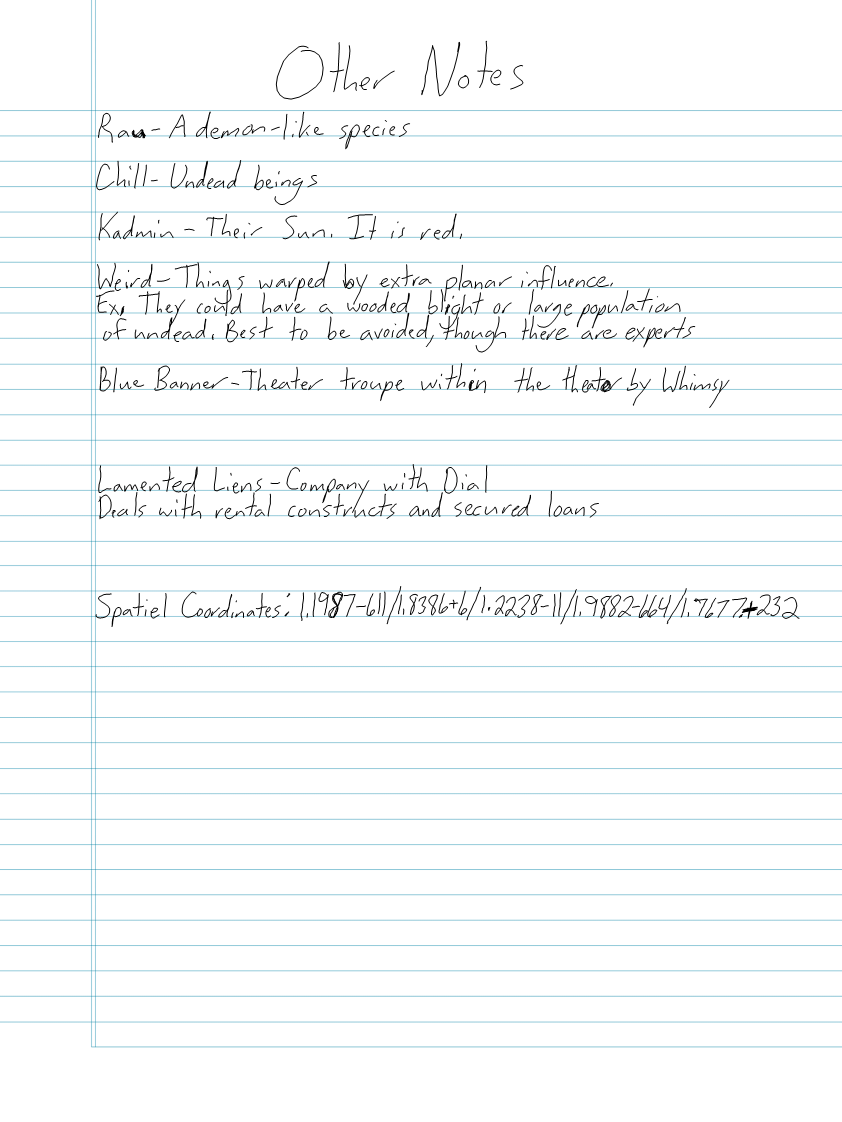 Other Notes
Rau- A demon-like species
Chill- Undead beings
Kadmin - Their Sun. It is red.
Weird- Things warped by extra planar influence.
Ex. They could have a wooded blight or large population
of undead. Best to be avoided, though there are experts
Blue Banner-Theater troupe within the theater by Whimsy
Lamented Liens - Company with Dial
Deals with rental constructs and secured loans
Spatiel Coordinates: 1.1987-611/1.8386+6/1.2238-11/1.9882-664/1.7677+232